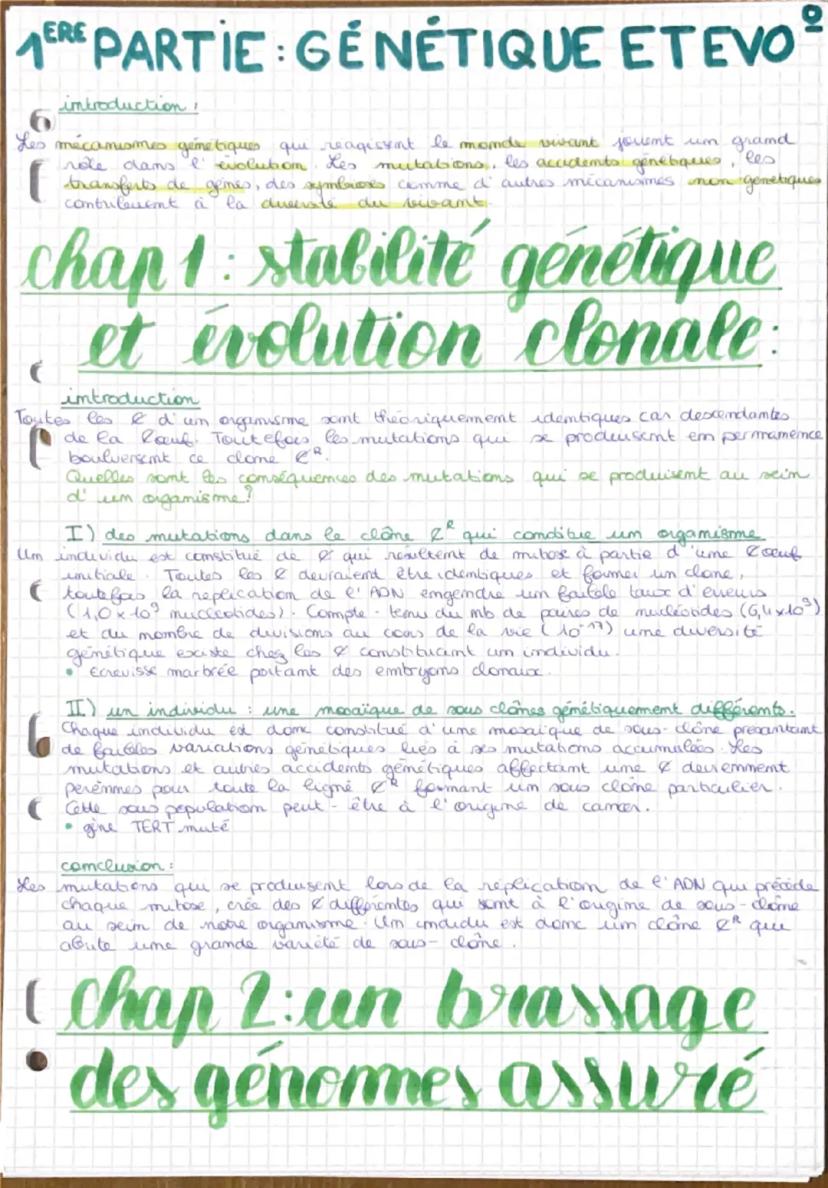 1ERE PARTIE : GÉNÉTIQUE ET EVO°
introduction :
Les mécanismes génétiques qui reagissent le monde vivant jouent un grand
rôle dans l'évolution. Les mutations, les accidents génétiques, les
transferts de gènes, des symbioses comme d'autres mécanismes non génétiques
contribuent à la diversité du vivant.
chap 1 : stabilité génétique
et évolution clonale :
introduction
Toutes les ¢ d'un organisme sont théoriquement identiques car descendantes
de la ¢oeuf. Toutefois les mutations qui se produisent en permanence
boulversent ce clone ¢R.
Quelles sont les conséquences des mutations qui se produisent au sein
d'un organisme ?
I) des mutations dans le clône ¢R qui conditue un organisme
Un individu est constitué de ¢ qui résultent de mitose à partie d'une ¢oeuf
initiale. Toutes les ¢ devraient être identiques et former un clone,
toutefois la replication de l'ADN engendre un faible taux d'erreurs
(1,0 x 10⁹ nuccleotides). Compte-tenu du nb de paires de nucléotides (6,4 x 10⁹)
et du nombre de divisions au cours de la vie (10⁻¹⁷) une diversité
génétique existe chez les ¢ constituant un individu.
• Ecrevisse marbrée portant des embryons clonaux.
II) un individu : une mosaïque de sous clônes génétiquement différents.
Chaque individu est donc constitué d'une mosaïque de sous-clône présentant
de faibles variations génétiques liés à ses mutations accumulées. Les
mutations et autres accidents génétiques affectant une ¢ deviennent
perénnes pour toute la ligné ¢R formant un sous clône particulier.
Cette sous population peut-être à l'origine de cancer.
• gène TERT muté
conclusion :
Les mutations qui se produisent lors de la réplication de l'ADN qui précède
chaque mitose, crée des ¢ différentes qui sont à l'origine de sous-clône
au sein de notre organisme. Un individu est donc un clône ¢R qui
abrite une grande variété de sous-clône.
chap 2 : un brassage
des génomes assuré